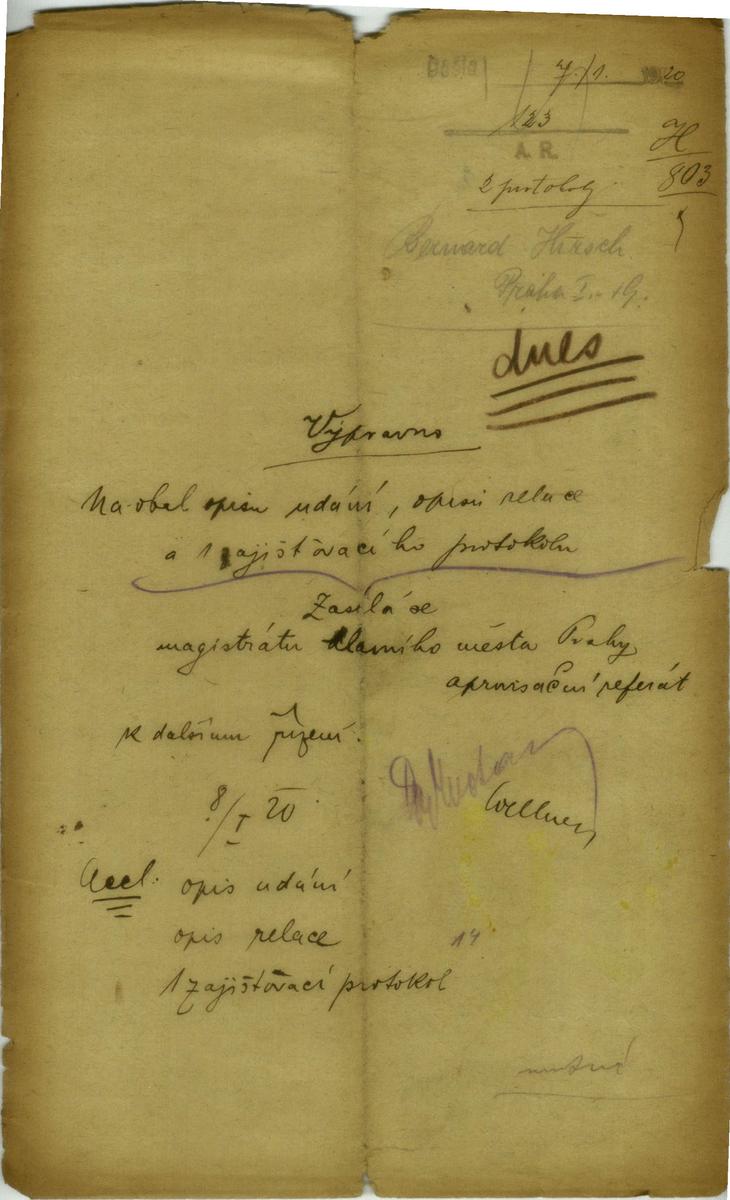 Došlo 7./1. 1920
123
A. R.
H
803
2 protokoly
Bernard Hirsch
Praha I. - 19.
dnes
Výpravno
Na obal opisu udání, opisu relace
a 1 zajišťovacího protokolu
Zasílá se
magistrátu hlavního města Prahy
aprovisační referát
k dalšímu řízení.
8/I 20
Wellner
Accl. opis udání
opis relace
14
1 zajišťovací protokol